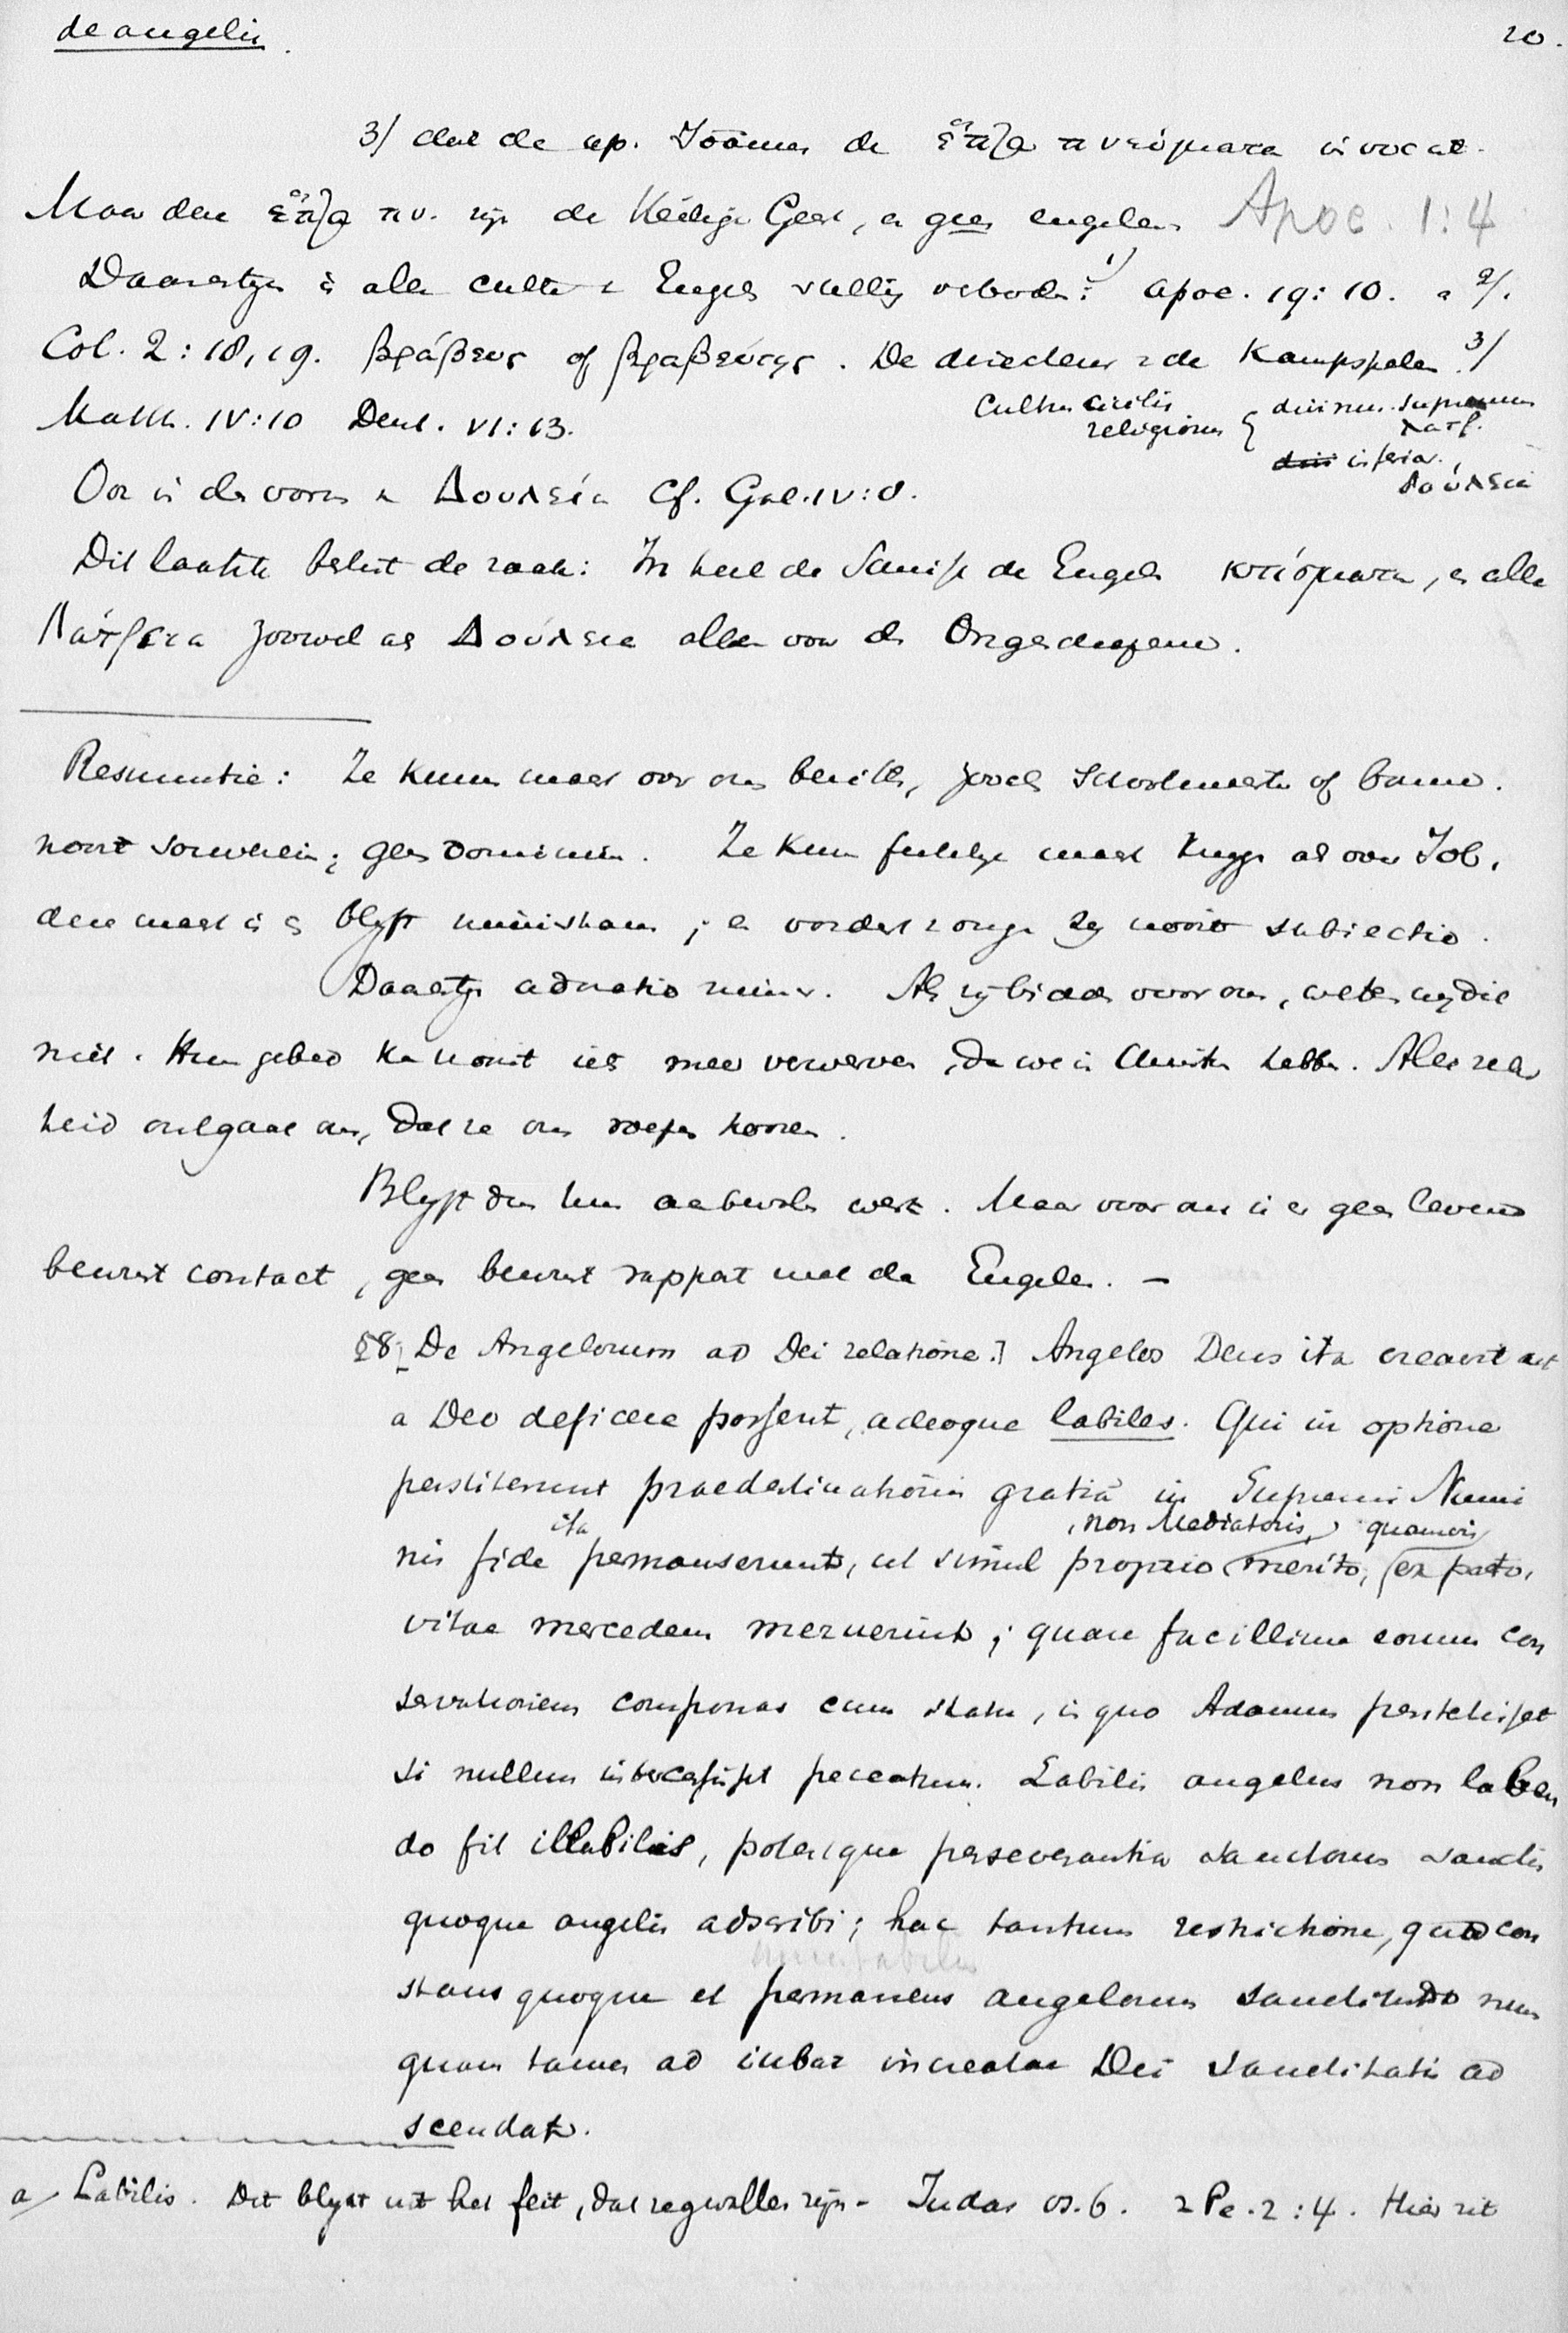 de angelis. 20.
3/ dat de ap. Joānnes de ἑπτα πνεύματα invocat.
Maar deze ἑπτα πν. zijn de Heilige Geest, en geen engelen Apoc. 1:4
Daarentegen is alle cultus v Engels stellig verboden: 1) Apoc. 19:10. en 2/.
Col. 2:18, 19. βράβευς of βραβεύτης. De directeur v de Kampspelen. 3/
Matth. IV:10 Deut. VI:13.
Cultus civilis
religiosus { divinus. supremus
λατρ.
inferior.,
δούλεια
Ook in de vorm v Δουλεία Cf. Gal. IV:8.
Dit laatste beslist de zaak: In heel de Schrift de Engelen κτίσματα, en alle
Λάτρεια zoowel als Δούλεια alleen voor de Ongeschapene.
Resumtie: Ze kunnen macht over ons bezitten, zooals Schoolmeester of bonne.
nooit souverein; geen Dominium. Ze kunnen feitelijke macht krijgen als over Job,
deze macht is en blijft ministram; en vordert v onze zij nooit subiectio.
Daarentegen adoratio nimmer. Als zij bidden voor ons, weten wij dit
niet. Hun gebed kan nooit iets meer verwerven, dan we in Christus hebben. Alle zeker
heid ontgaat ons, dat ze ons roepen hooren.
Blijft dus hun aanbevolen werk. Maar voor ons is er geen levend
bewust contact, geen bewust rapport met de Engelen. —
§8. De Angelorum ad Dei relatione.] Angelos Deus ita creavit ut
a Deo deficere possent, adeoque labiles. Qui in optione
perstiterunt praedestinationis gratiā in Supremi Numi
nis fide ita permanserunt, ut simul proprio (merito, non Mediatoris,) quamvis (ex pacto,
vitae mercedem meruerint; quare facillime eorum con
servationem componas cum statu, in quo Adamus perstetisset
si nullum intercessisset peccatum. Labilis angelus non laben
do fit illabilis, potestque perseverantia sanctorum sanctis
quoque angelis adscribi; hac tantum restrictione, quod con
stans quoque et permanens immutabilis angelorum sanctitudo nun
quam tamen ad iubar increatae Dei sanctitatis ad
scendat.
a/ Labilis. Dit blijkt uit het feit, dat ze gevallen zijn - Judas vs. 6. 2 Pe. 2:4. Hier zit